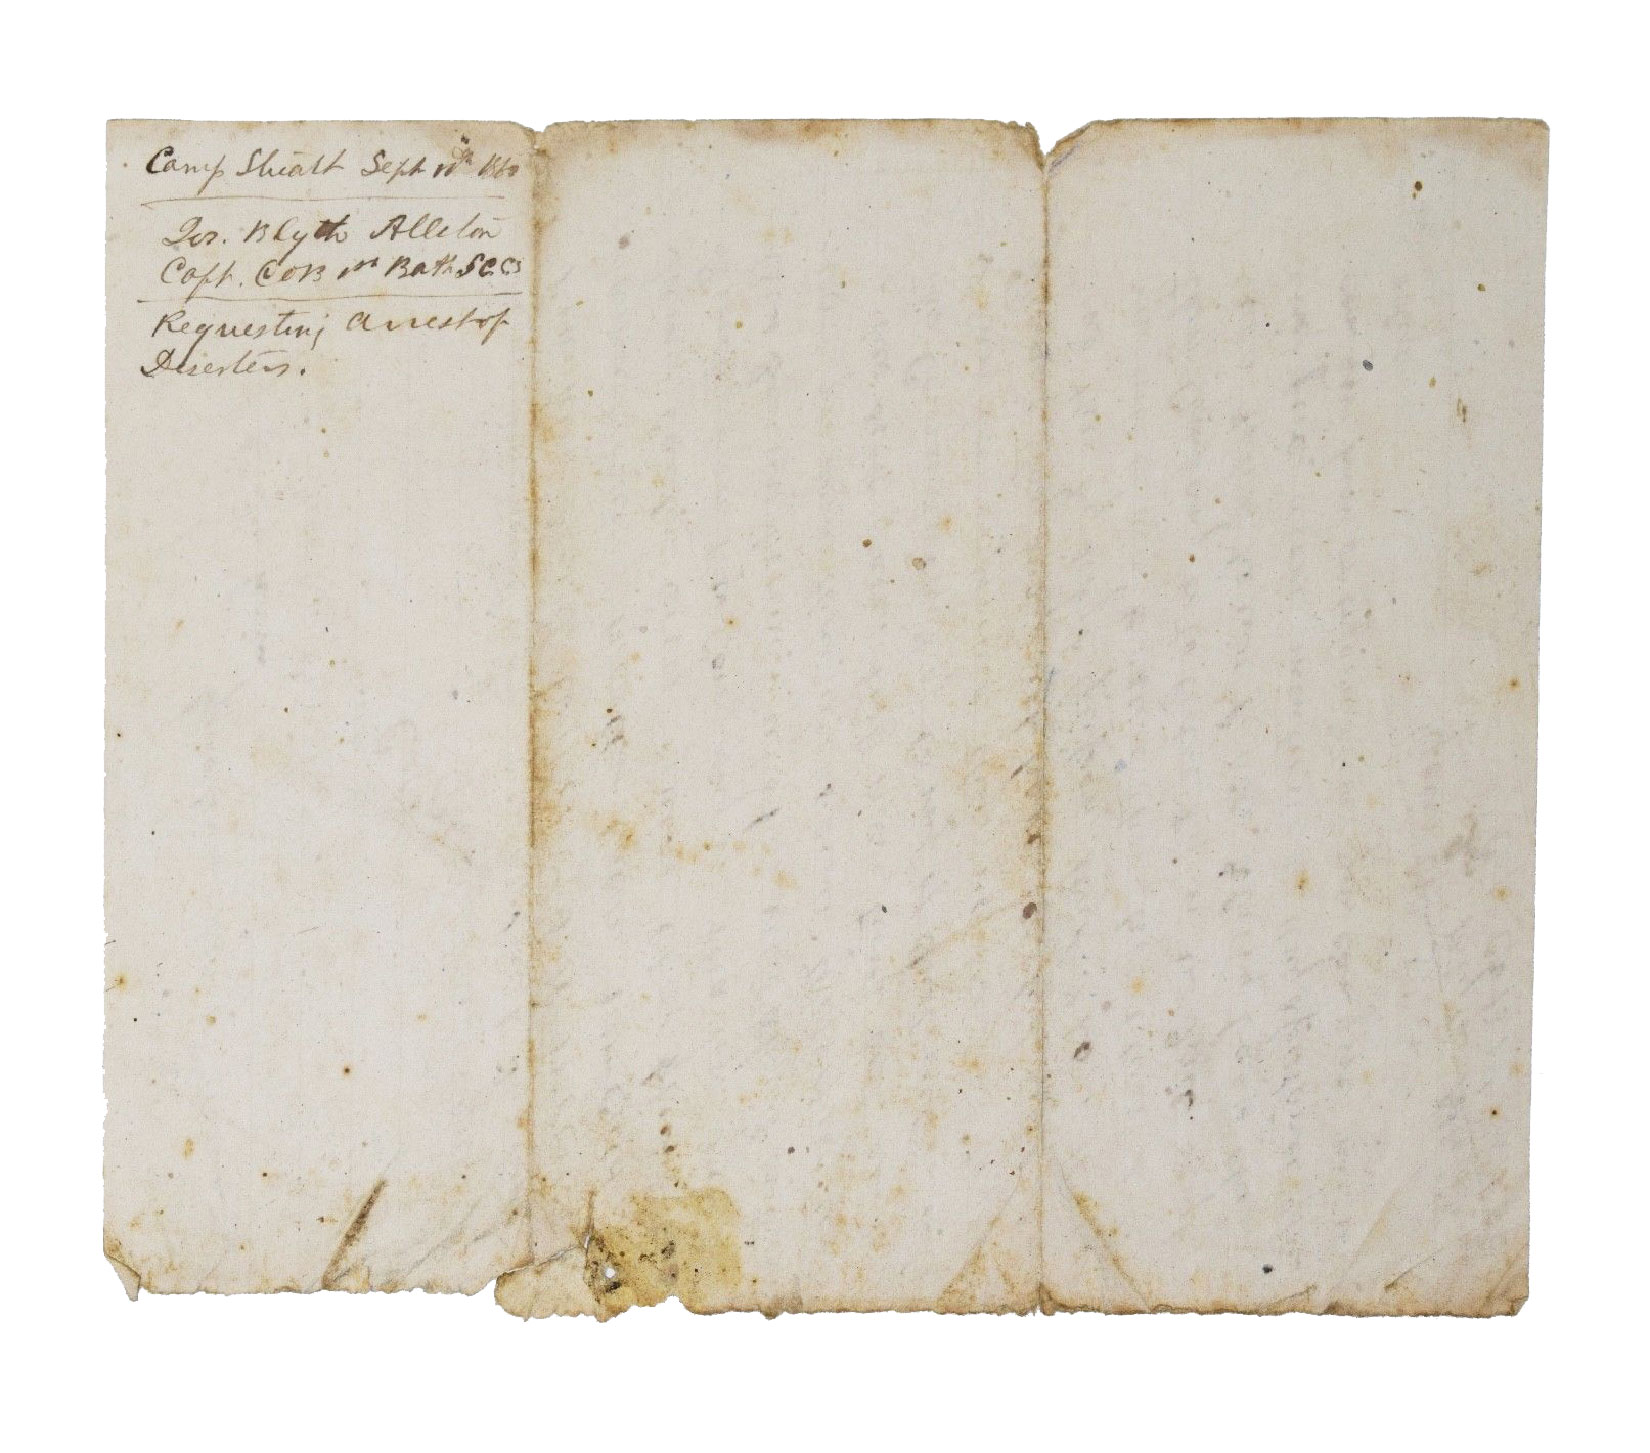 Camp Stuart Sept 11th 186
Jos. Blyth Allston
Capt. Co B 1st Batt. S C
Requesting arrest of
Deserters.